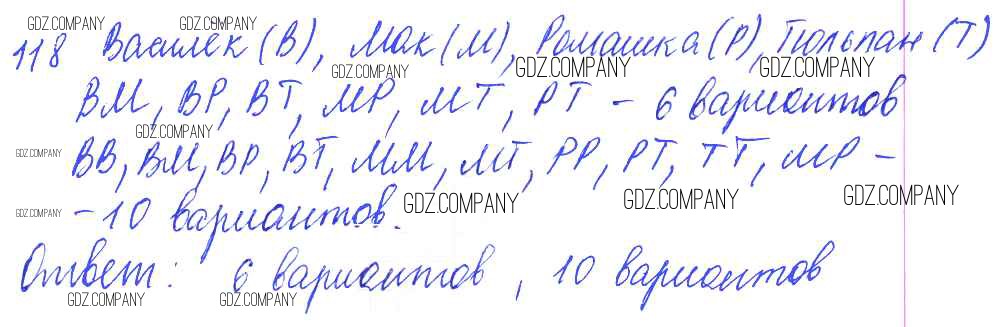 GDZ.COMPANY GDZ.COMPANY
118 Василёк (В), Мак (М), Ромашка (Р), Тюльпан (Т)
GDZ.COMPANY GDZ.COMPANY GDZ.COMPANY
ВМ, ВР, ВТ, МР, МТ, РТ - 6 вариантов
GDZ.COMPANY
GDZ.COMPANY ВВ, ВМ, ВР, ВТ, ММ, МТ, РР, РТ, ТТ, МР -
GDZ.COMPANY - 10 вариантов. GDZ.COMPANY GDZ.COMPANY GDZ.COMPANY
Ответ: 6 вариантов, 10 вариантов
GDZ.COMPANY GDZ.COMPANY